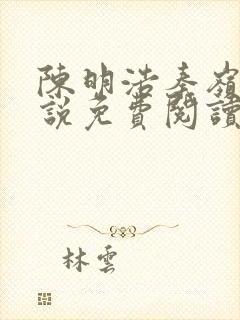 陳明浩秦嶺
說免費閱讀
林雲